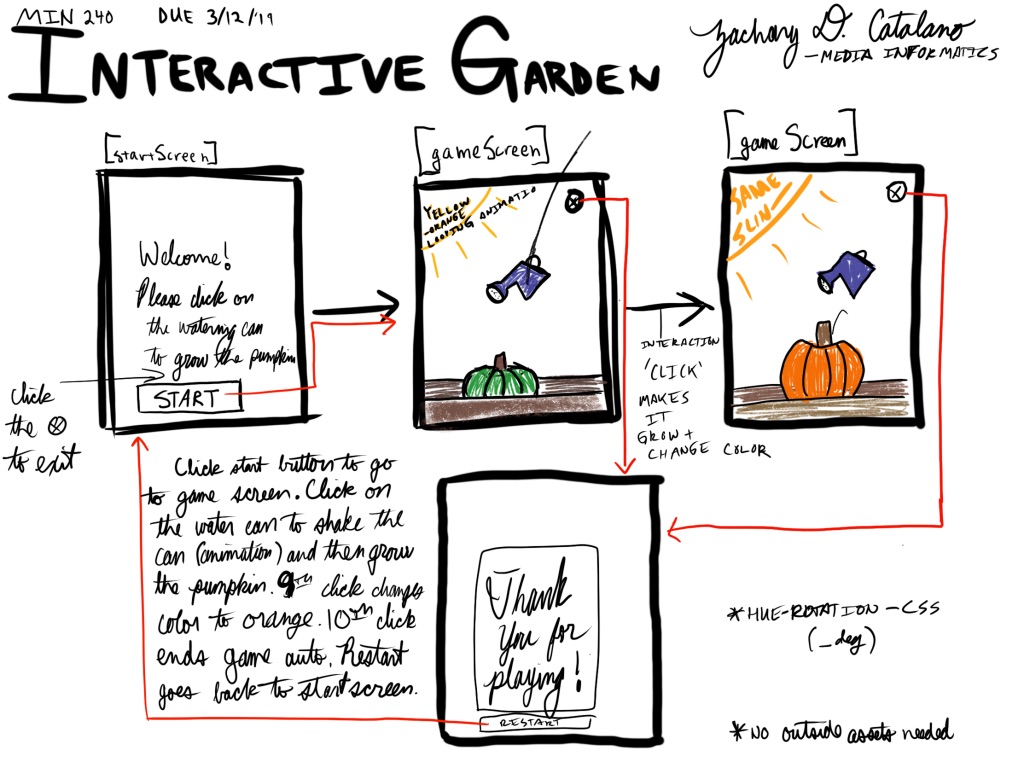 MIN 240 DUE 3/12/'19
Zachary D. Catalano
- MEDIA INFORMATICS
INTERACTIVE GARDEN
[startScreen]
[gameScreen]
[gameScreen]
Welcome!
Please click on
the watering can
to grow the pumpkin
START
Click
the ⓧ
to exit
YELLOW
-ORANGE
LOOPING ANIMATIO
X
INTERACTION
'CLICK'
MAKES
IT
GROW +
CHANGE COLOR
SAME
SUN
X
Click start button to go
to game screen. Click on
the water can to shake the
can (animation) and then grow
the pumpkin. 9TH click changes
color to orange. 10TH click
ends game auto. Restart
goes back to start screen.
Thank
you for
playing!
RESTART
*HUE-ROTATION - CSS
(_deg)
*No outside assets needed